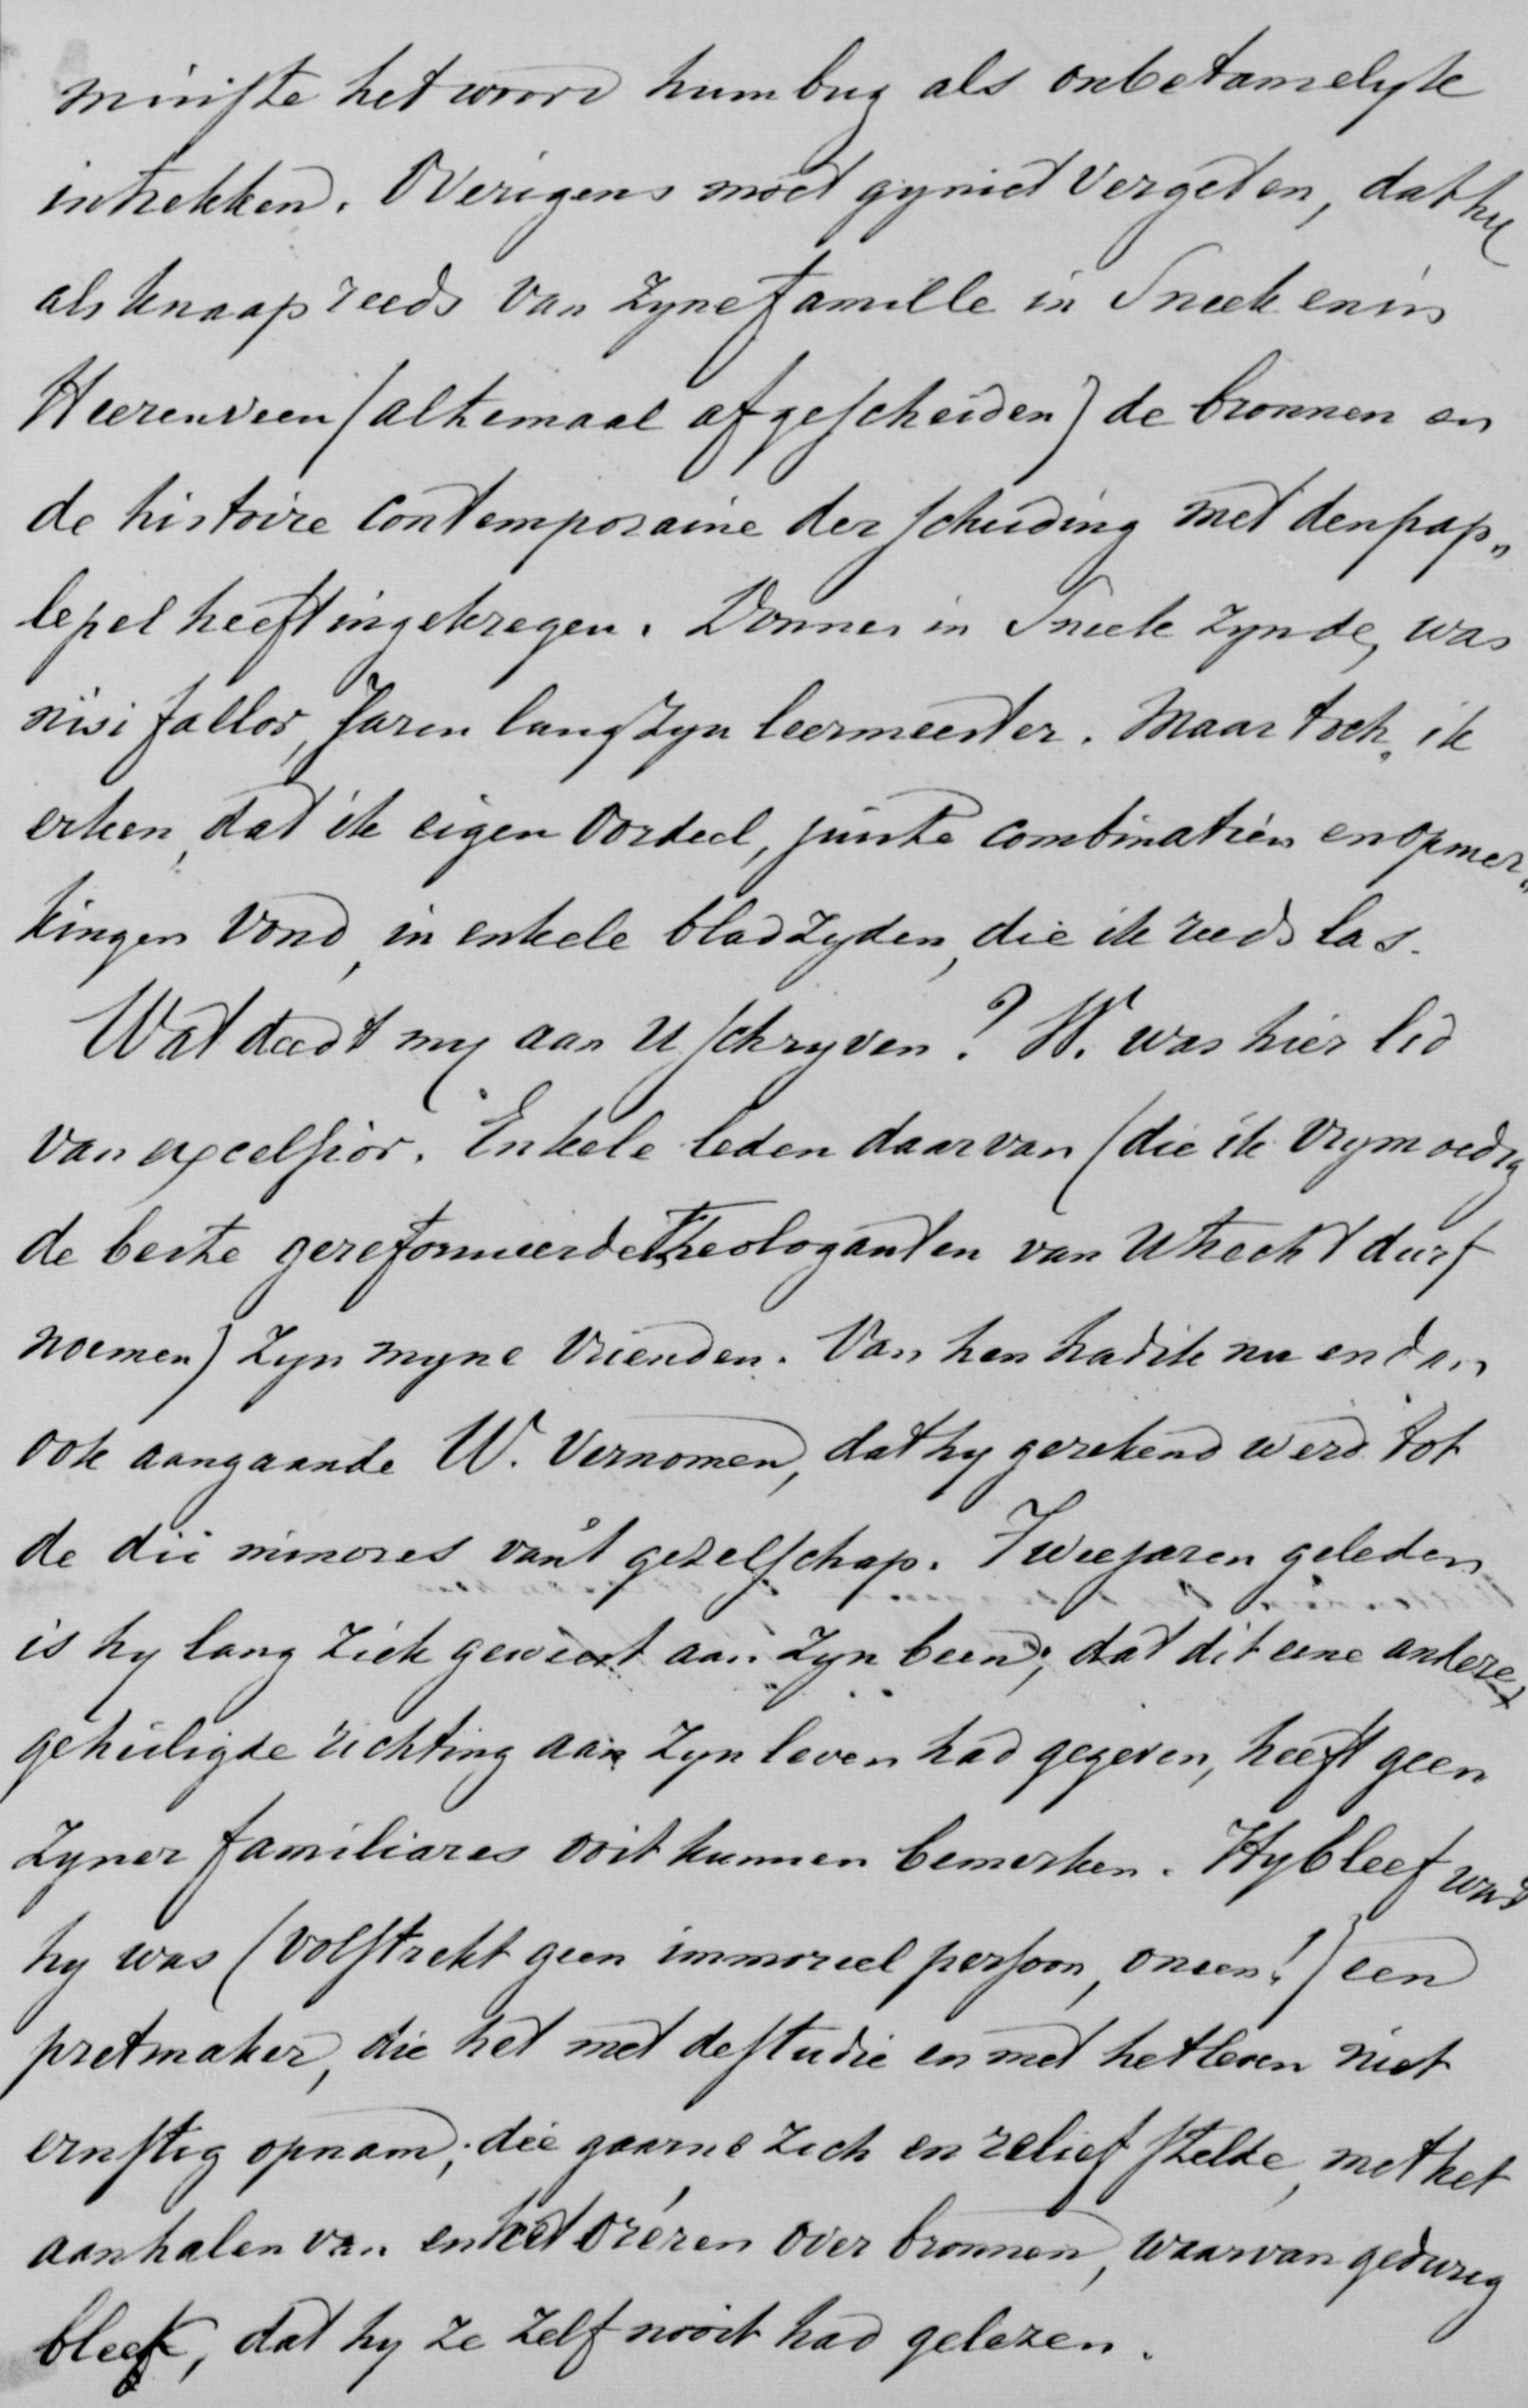 minste het woord humbug als onbetamelyk
intrekken. Overigens moet gy niet vergeten, dat hy
als knaap reeds van zyne famille in Sneek en in
Heerenveen (altemaal afgescheiden) de bronnen en
de histoire contemporaine der scheiding met den pap„
lepel heeft ingekregen. Donner in Sneek zynde, was
nisi fallor, jaren lang zyn leermeester. Maar toch, ik
erken, dat ik eigen oordeel, juiste combinatiën en opmer„
kingen vond, in enkele bladzyden, die ik reeds las.
Wat deedt my aan U schryven? W. was hier lid
van excelsior. Enkele leden daarvan (die ik vrymoedig
de beste gereformeerde Theologanten van Utrecht durf
noemen) zyn myne vrienden. Van hen had ik nu en dan
ook aangaande W. vernomen, dat hy gerekend werd tot
de dii minores van 't gezelschap. Twee jaren geleden
is hy lang ziek geweest aan zyn been; dat dit eene andere,
geheiligde richting aan zyn leven had gegeven, heeft geen
zyner familiares ooit kunnen bemerken. Hy bleef wat
hy was (volstrekt geen immoreel persoon, o neen!) een
pretmaker, die het met de studie en met het leven niet
ernstig opnam; die gaarne zich en relief stelde, met het
aanhalen van en het oréren over bronnen, waarvan gedurig
bleek, dat hy ze zelf nooit had gelezen.